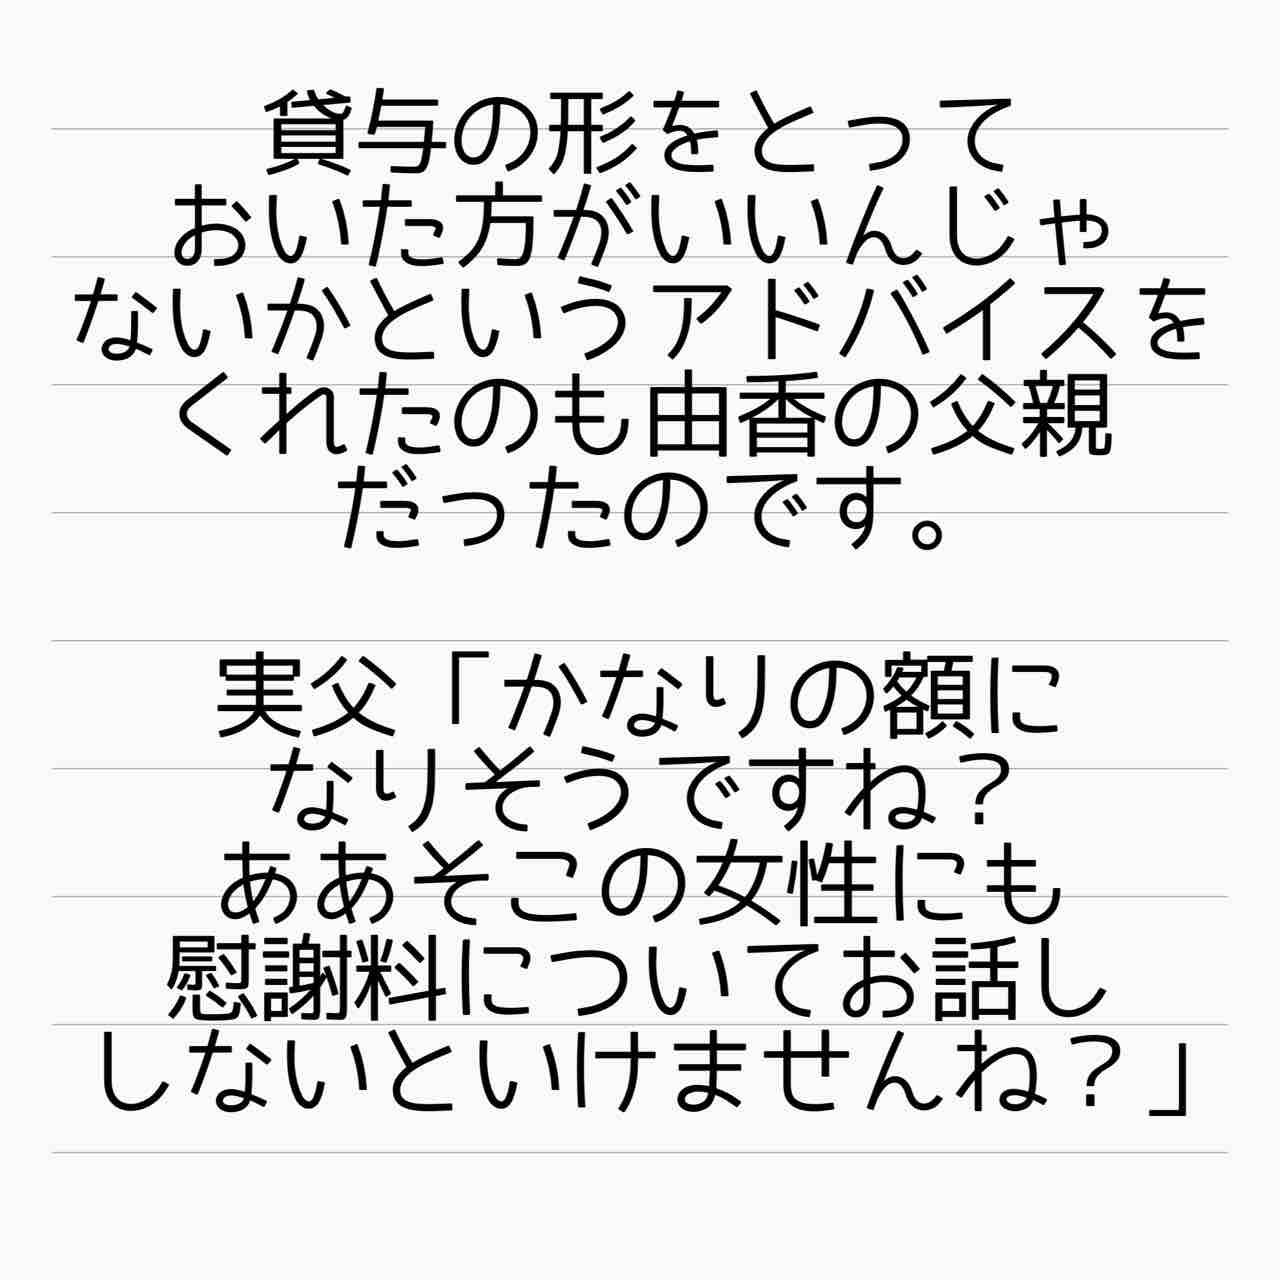 貸与の形をとって
おいた方がいいんじゃ
ないかというアドバイスを
くれたのも由香の父親
だったのです。
実父「かなりの額に
なりそうですね？
ああそこの女性にも
慰謝料についてお話し
しないといけませんね？」